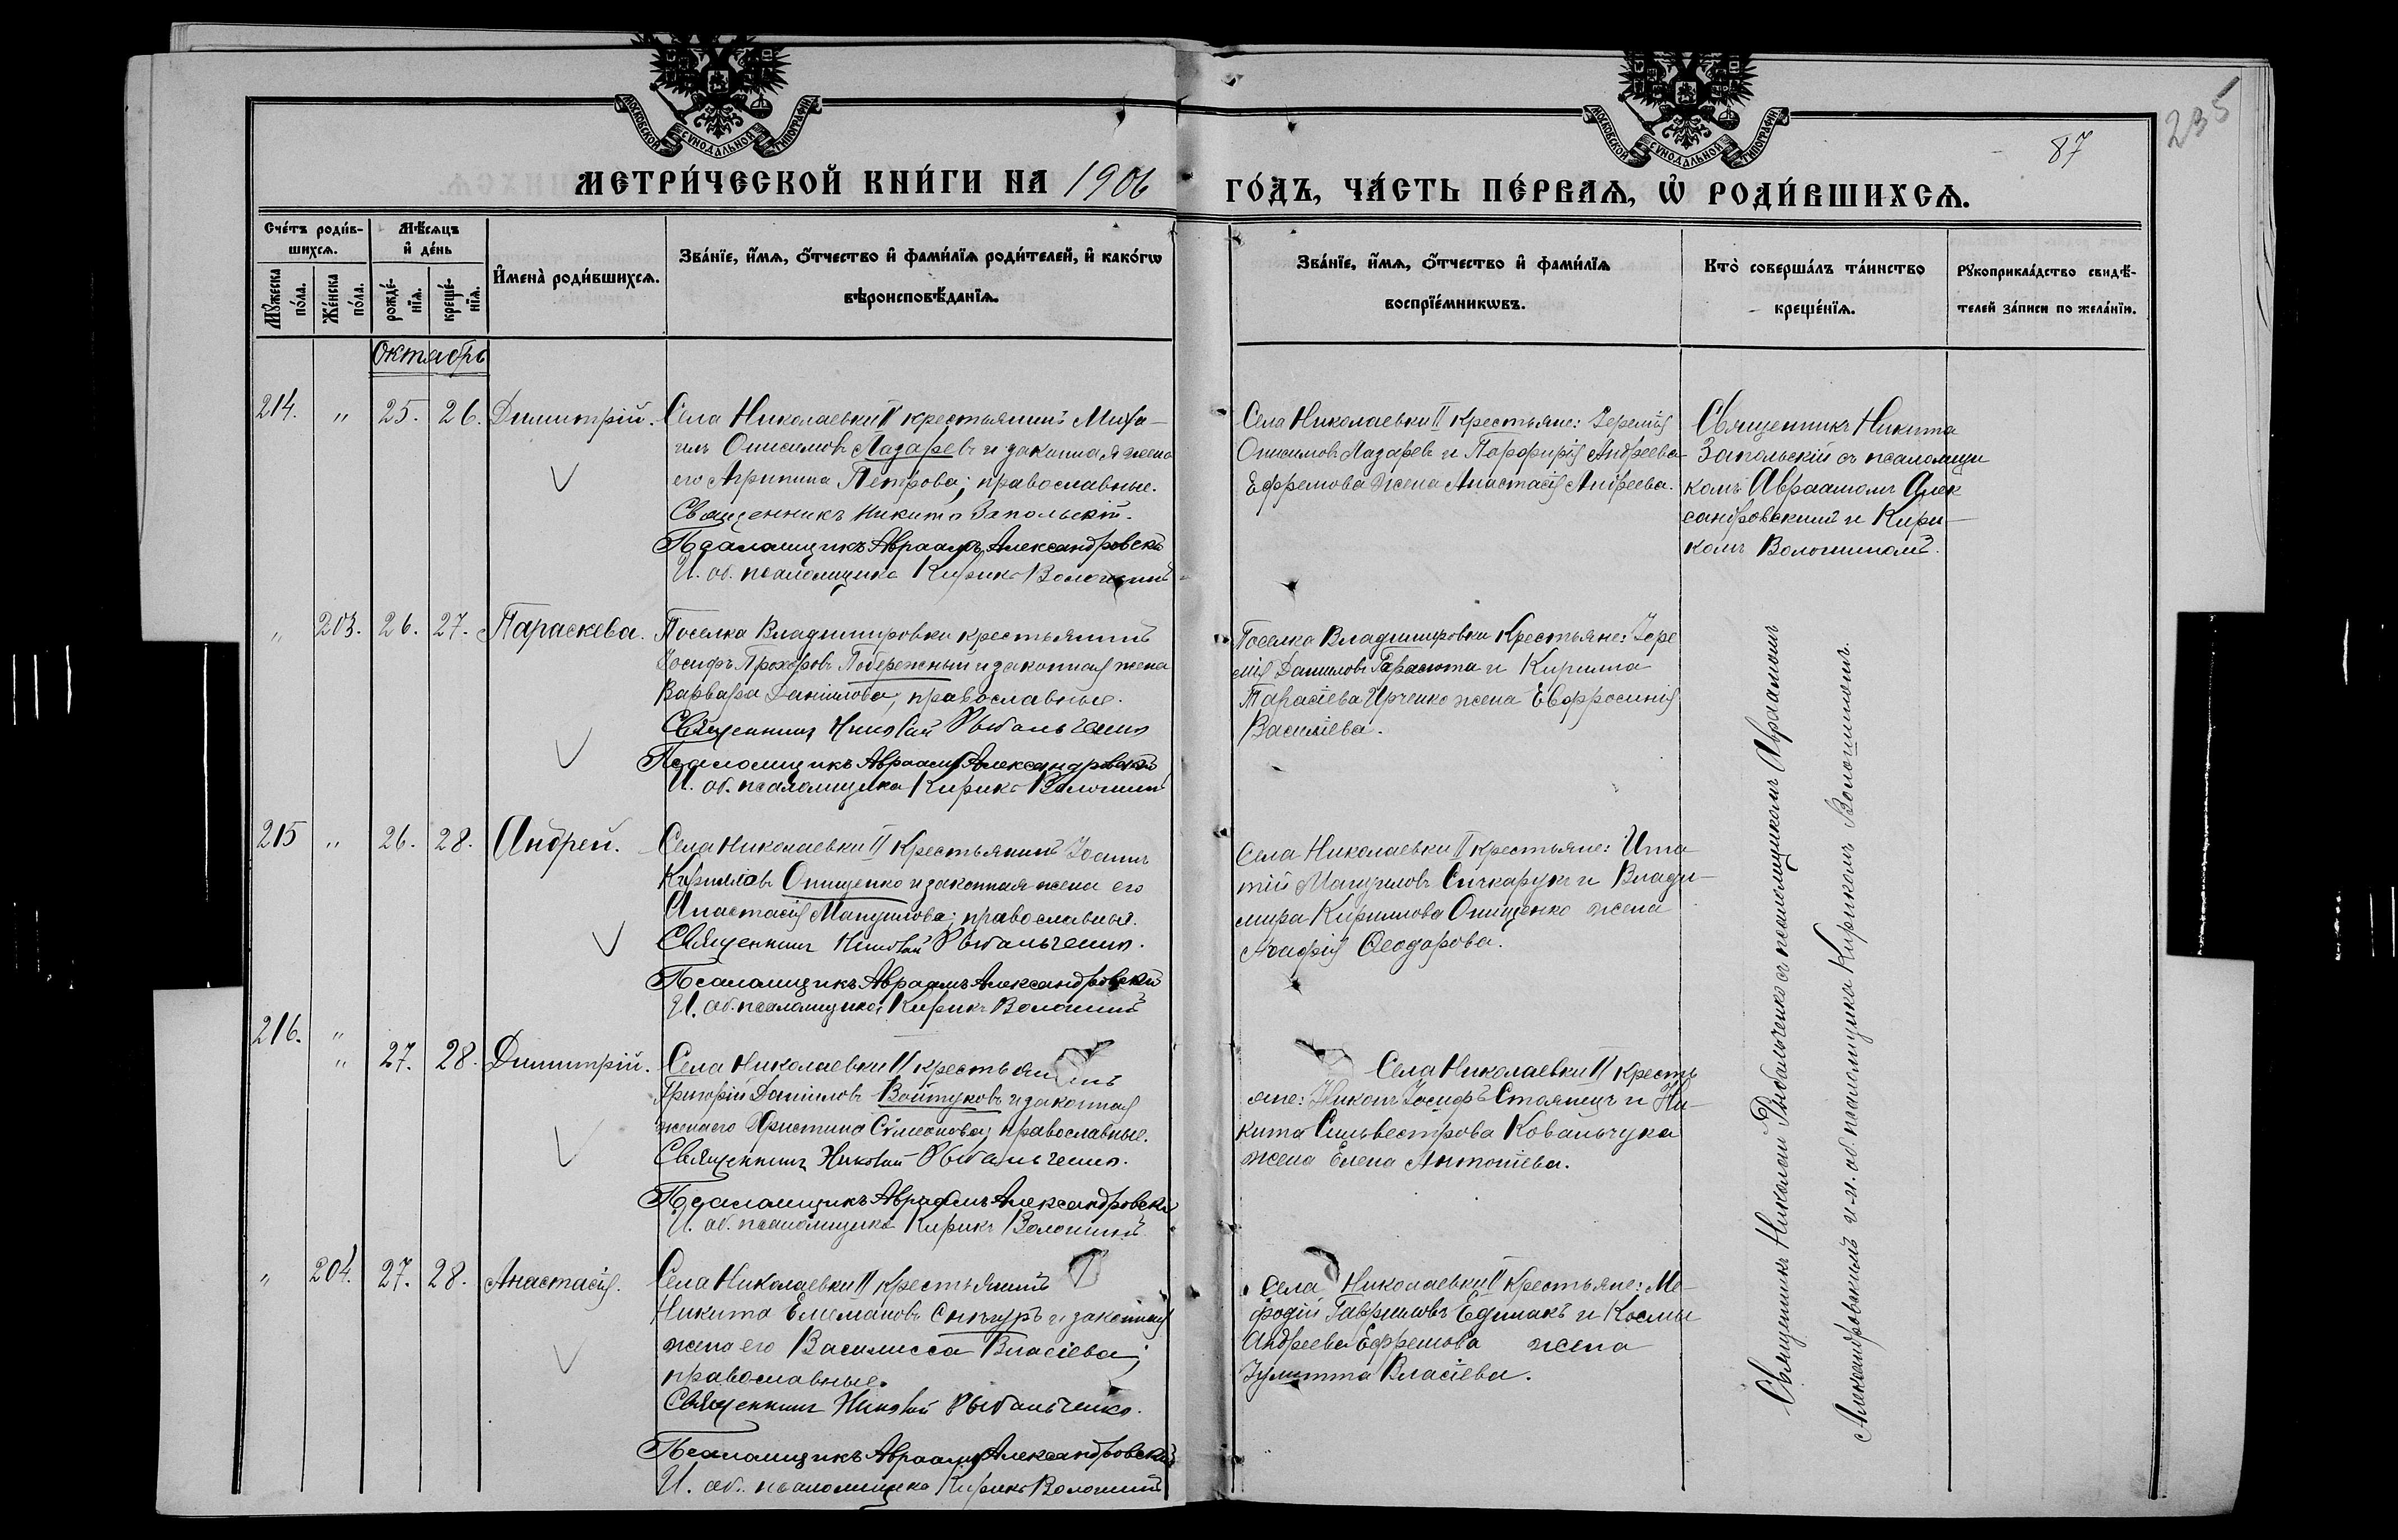 МОСКОВСКОЙ СѴНОДАЛЬНОЙ ТИПОГРАФІИ
МОСКОВСКОЙ СѴНОДАЛЬНОЙ ТИПОГРАФІИ
235
87
МЕТРИ́ЧЕСКОЙ КНИ́ГИ НА 1906
ГО́ДЪ, ЧА́СТЬ ПЕ́РВАѦ, Ѡ҆ РОДИ́ВШИХСѦ.
Сче́тъ роди́в-
шихсѧ.
Мꙋ́жеска по́ла.
Же́нска по́ла.
Мѣ́сѧцъ
и҆ де́нь
рожде́-нїѧ.
креще́-нїѧ.
И҆мена̀ роди́вшихсѧ.
Зва́нїе, и҆́мѧ, ѻ҆́тчество и҆ фами́лїѧ роди́телей, и҆ како́гѡ
вѣроисповѣ́данїѧ.
Зва́нїе, и҆́мѧ, ѻ҆́тчество и҆ фами́лїѧ
воспрїе́мникѡвъ.
Кто̀ соверша́лъ та́инство
креще́нїѧ.
Рꙋкоприкла́дство свидѣ́-
телей за́писи по жела́нїю.
Октябрь
214. " 25. 26. Димитрій.
Села Николаевки II крестьянинъ Миха-
илъ Онисимовъ Лазаревъ и законная жена
его Агрипина Петрова; православные.
Священникъ Никита Запольскій.
Псаломщикъ Авраамъ Александровскій
И. об. псаломщика Кирикъ Волошинъ
Села Николаевки II крестьяне: Іеремія
Онисимовъ Лазаревъ и Порфирія Андреева
Ефремова жена Анастасія Андреева.
Священникъ Никита
Запольскій съ псаломщи
комъ Авраамомъ Алек
сандровскимъ и Кири-
комъ Волошиномъ.
" 203. 26. 27. Параскева.
Поселка Владимировки крестьянинъ
Іосифъ Прохоровъ Побережный и законная жена
Варвара Даниилова, православные.
Священникъ Николай Рыбальченко
Псаломщикъ Авраамъ Александровскій
И. об. псаломщика Кирикъ Волошинъ
Поселка Владимировки Крестьяне: Іере
мія Даниловъ Гарасюта и Кирилла
Тарасіева Юрченко жена Евфросинія
Василіева.
215 " 26. 28. Андрей.
Села Николаевки II Крестьянинъ Іоаннъ
Кирилловъ Онищенко и законная жена его
Анастасія Мануилова; православныя.
Священникъ Николай Рыбальченко.
Псаломщикъ Авраамъ Александровскій
И. об. псаломщика Кирикъ Волошинъ
Села Николаевки II крестьяне: Игна
тій Мануиловъ Сичкарукъ и Влади-
мира Кириллова Онищенко жена
Агафія Ѳеодорова.
216. "
" 27. 28. Димитрій.
Села Николаевки II крестьянинъ
Григорій Даніиловъ Войтуковъ и законная
жена его Христина Сѵмеонова; православные.
Священникъ Николай Рыбальченко.
Псаломщикъ Авраамъ Александровскій
И. об. псаломщика Кирикъ Волошинъ
Села Николаевки II кресть
яне: Никонъ Іосифъ Стоянецъ и Ни-
кита Сильвестрова Ковальчука
жена Елена Антоніева.
" 204. 27. 28. Анастасія.
Села Николаевки II Крестьянинъ
Никита Снѣгуръ и законная
жена его Василисса Власіева;
православные.
Священникъ Николай Рыбальченко.
Псаломщикъ Авраамъ Александровскій
И. об. псаломщика Кирикъ Волошинъ
Села Николаевки II Крестьяне: Ме-
фодій Гавриловъ Едимакъ и Космы
Андреева Ефремова жена
Іулитта Власіева.
Священникъ Николай Рыбальченко съ псаломщикомъ Авраамомъ
Александровскимъ и и. об. псаломщика Кирикомъ Волошиномъ.